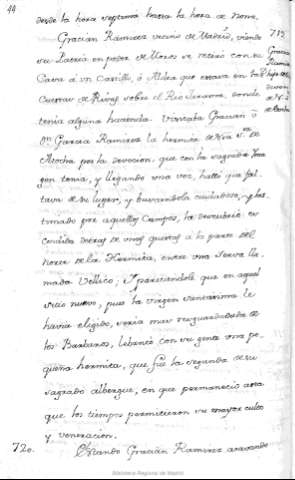 44
desde la hora septima hasta la hora de nona.
Gracian Ramirez vecino de Madrid, viendo
su Patria en poder de Moros se retiró con su
Casa á un Castillo, ó Aldea que estava en las
Cuestas de Rivas sobre el Rio Jarama, donde
tenia alguna hacienda. Visitaba Gracian ó
Dn. Garcia Ramirez la hermita de Nra. Sra. de
Atocha por la devocion, que con la sagrada Ima
gen tenia, y llegando una vez, halló que fal
tava de su lugar, y buscandola cuidadoso, y las
timado por aquellos Campos, la descubrio es
condida detras de unas quiebras á la parte del
Norte de la Hermita, entre una Yerva lla
mada Vallico; Y pareciendole que en aquel
sitio nuevo, pues la Virgen santissima le
havia eligido, seria mas resguardada de
los Barbaros, lebantó con su gente una pe
queña hermita, que fué la segunda de su
sagrado albergue, en que permaneció asta
que los tiempos permitieron su mayor culto
y veneracion.
Estando Gracian Ramirez
719
Gracian
Ramirez
720.
Biblioteca Regional de Madrid